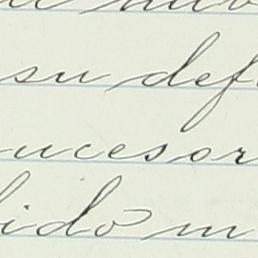 su def
ucesor
lido m